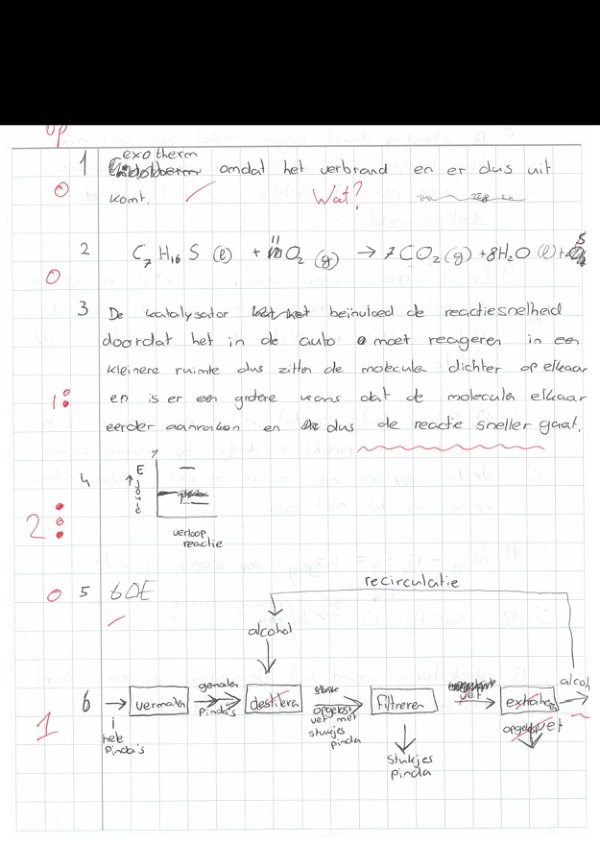 op
1 exotherm omdat het verbrand en er dus uit
0 komt. Wat?
2 C7 H16 S (l) + 11 O2 (g) → 7 CO2 (g) + 8H2O (l) + S
0
3 De katalysator beïnvloed de reactiesnelheid
doordat het in de auto moet reageren in een
kleinere ruimte dus zitten de molecula dichter op elkaar
1 en is er een grotere kans dat de molecula elkaar
eerder aanraken en dus de reactie sneller gaat.
4
E
↑
Joule
2
verloop
reactie
0 5 6OE
recirculatie
alcohol
6 → vermalen gemalen pinda's destilera opgelost vet met stukjes pinda filtreren vet extraher alcoh
1
hele
pinda's
stukjes
pinda
opgelost vet